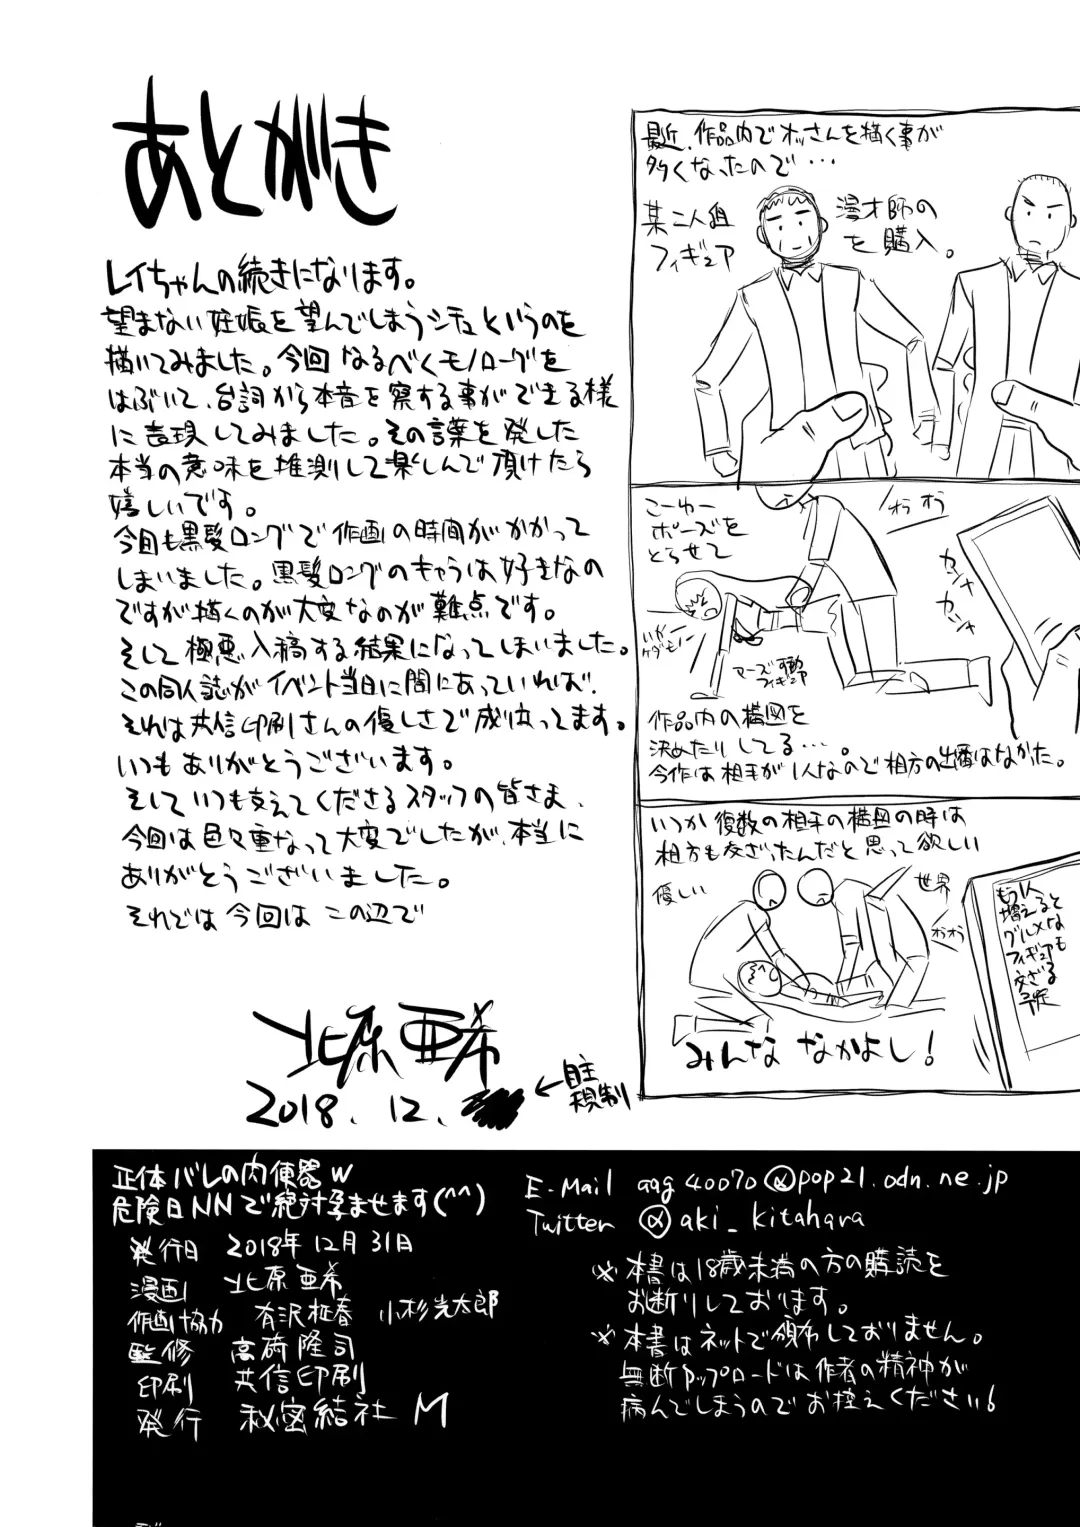 あとがき
レイちゃんの続きになります。
望まない妊娠を望んでしまうシチュというのを
描いてみました。今回なるべくモノローグを
はぶいて、台詞から本音を察する事ができる様
に表現してみました。その言葉を発した
本当の意味を推測して楽しんで頂けたら
嬉しいです。
今回も黒髪ロングで作画の時間がかかって
しまいました。黒髪ロングのキャラは好きなの
ですが描くのが大変なのが難点です。
そして極悪入稿する結果になってしまいました。
この同人誌がイベント当日に間にあっていれば、
それは共信印刷さんの優しさで成り立ってます。
いつもありがとうございます。
そしていつも支えてくださるスタッフの皆さま、
今回は色々重なって大変でしたが、本当に
ありがとうございました。
それでは今回はこの辺で
北原亜希
2018.12.
←自主
規制
最近、作品内でオッさんを描く事が
多くなったので・・・
某二人組 漫才師の
フィギュア を購入。
こーゆー
ポーズを
とらせて
オラオラ
カシャ
カシャ
いや
ケダモノ
アーズ可動
フィギュア
作品内の構図を
決めたりしてる・・・。
今作は相手が1人なので相方の出番はなかった。
いつか複数の相手の構図の時は
相方も交ざったんだと思って欲しい
優しい 世界
オラオラ
もう1人
増えると
グルメな
フィギュアも
交ざる
予定
みんななかよし!
正体バレの肉便器w
危険日NNで絶対孕ませます(^^)
発行日 2018年12月31日
漫画 北原亜希
作画協力 有沢柾春 小杉光太郎
監修 高碕隆司
印刷 共信印刷
発行 秘密結社M
E-Mail aag40070@pop21.odn.ne.jp
Twitter @aki_kitahara
※本書は18歳未満の方の購読を
お断りしております。
※本書はネットで頒布しておりません。
無断アップロードは作者の精神が
病んでしまうのでお控えください!